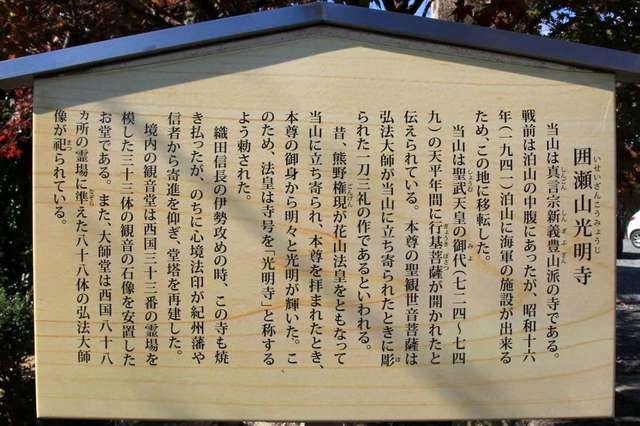 いせざんこうみょうじ
囲瀬山光明寺
当山は真言宗新義豊山派の寺である。
戦前は泊山の中腹にあったが、昭和十六
年(一九四一)泊山に海軍の施設が出来る
ため、この地に移転した。
当山は聖武天皇の御代(七二四〜七四
九)の天平年間に行基菩薩が開かれたと
伝えられている。本尊の聖観世音菩薩は
弘法大師が当山に立ち寄られたときに彫
られた一刀三礼の作であるといわれる。
昔、熊野権現が花山法皇をともなって
当山に立ち寄られ、本尊を拝まれたとき、
本尊の御身から明々と光明が輝いた。こ
のため、法皇は寺号を「光明寺」と称する
よう勅された。
織田信長の伊勢攻めの時、この寺も焼
き払ったが、のちに心境法印が紀州藩や
信者から寄進を仰ぎ、堂塔を再建した。
境内の観音堂は西国三十三番の霊場を
模した三十三体の観音の石像を安置した
お堂である。また、大師堂は西国八十八
カ所の霊場に準えた八十八体の弘法大師
像が祀られている。